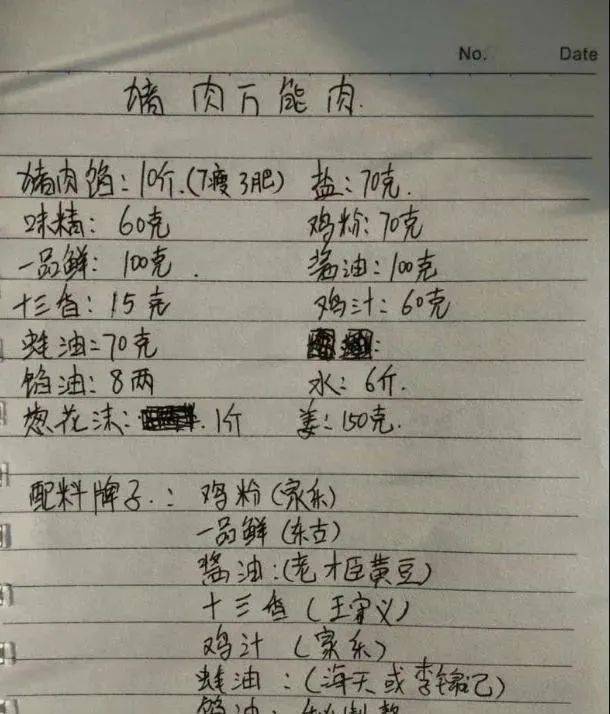 No. Date
猪肉万能肉.
猪肉馅:10斤.(7瘦3肥) 盐:70克.
味精:60克 鸡粉:70克
一品鲜:100克. 酱油:100克
十三香:15克 鸡汁:60克
蚝油=70克
馅油:8两 水:6斤.
葱花沫: 1斤 姜:150克.
配料牌子.:鸡粉(家乐)
一品鲜(东古)
酱油:(老才臣黄豆)
十三香(王守义)
鸡汁(家乐)
蚝油:(海天或李锦记)
馅油: